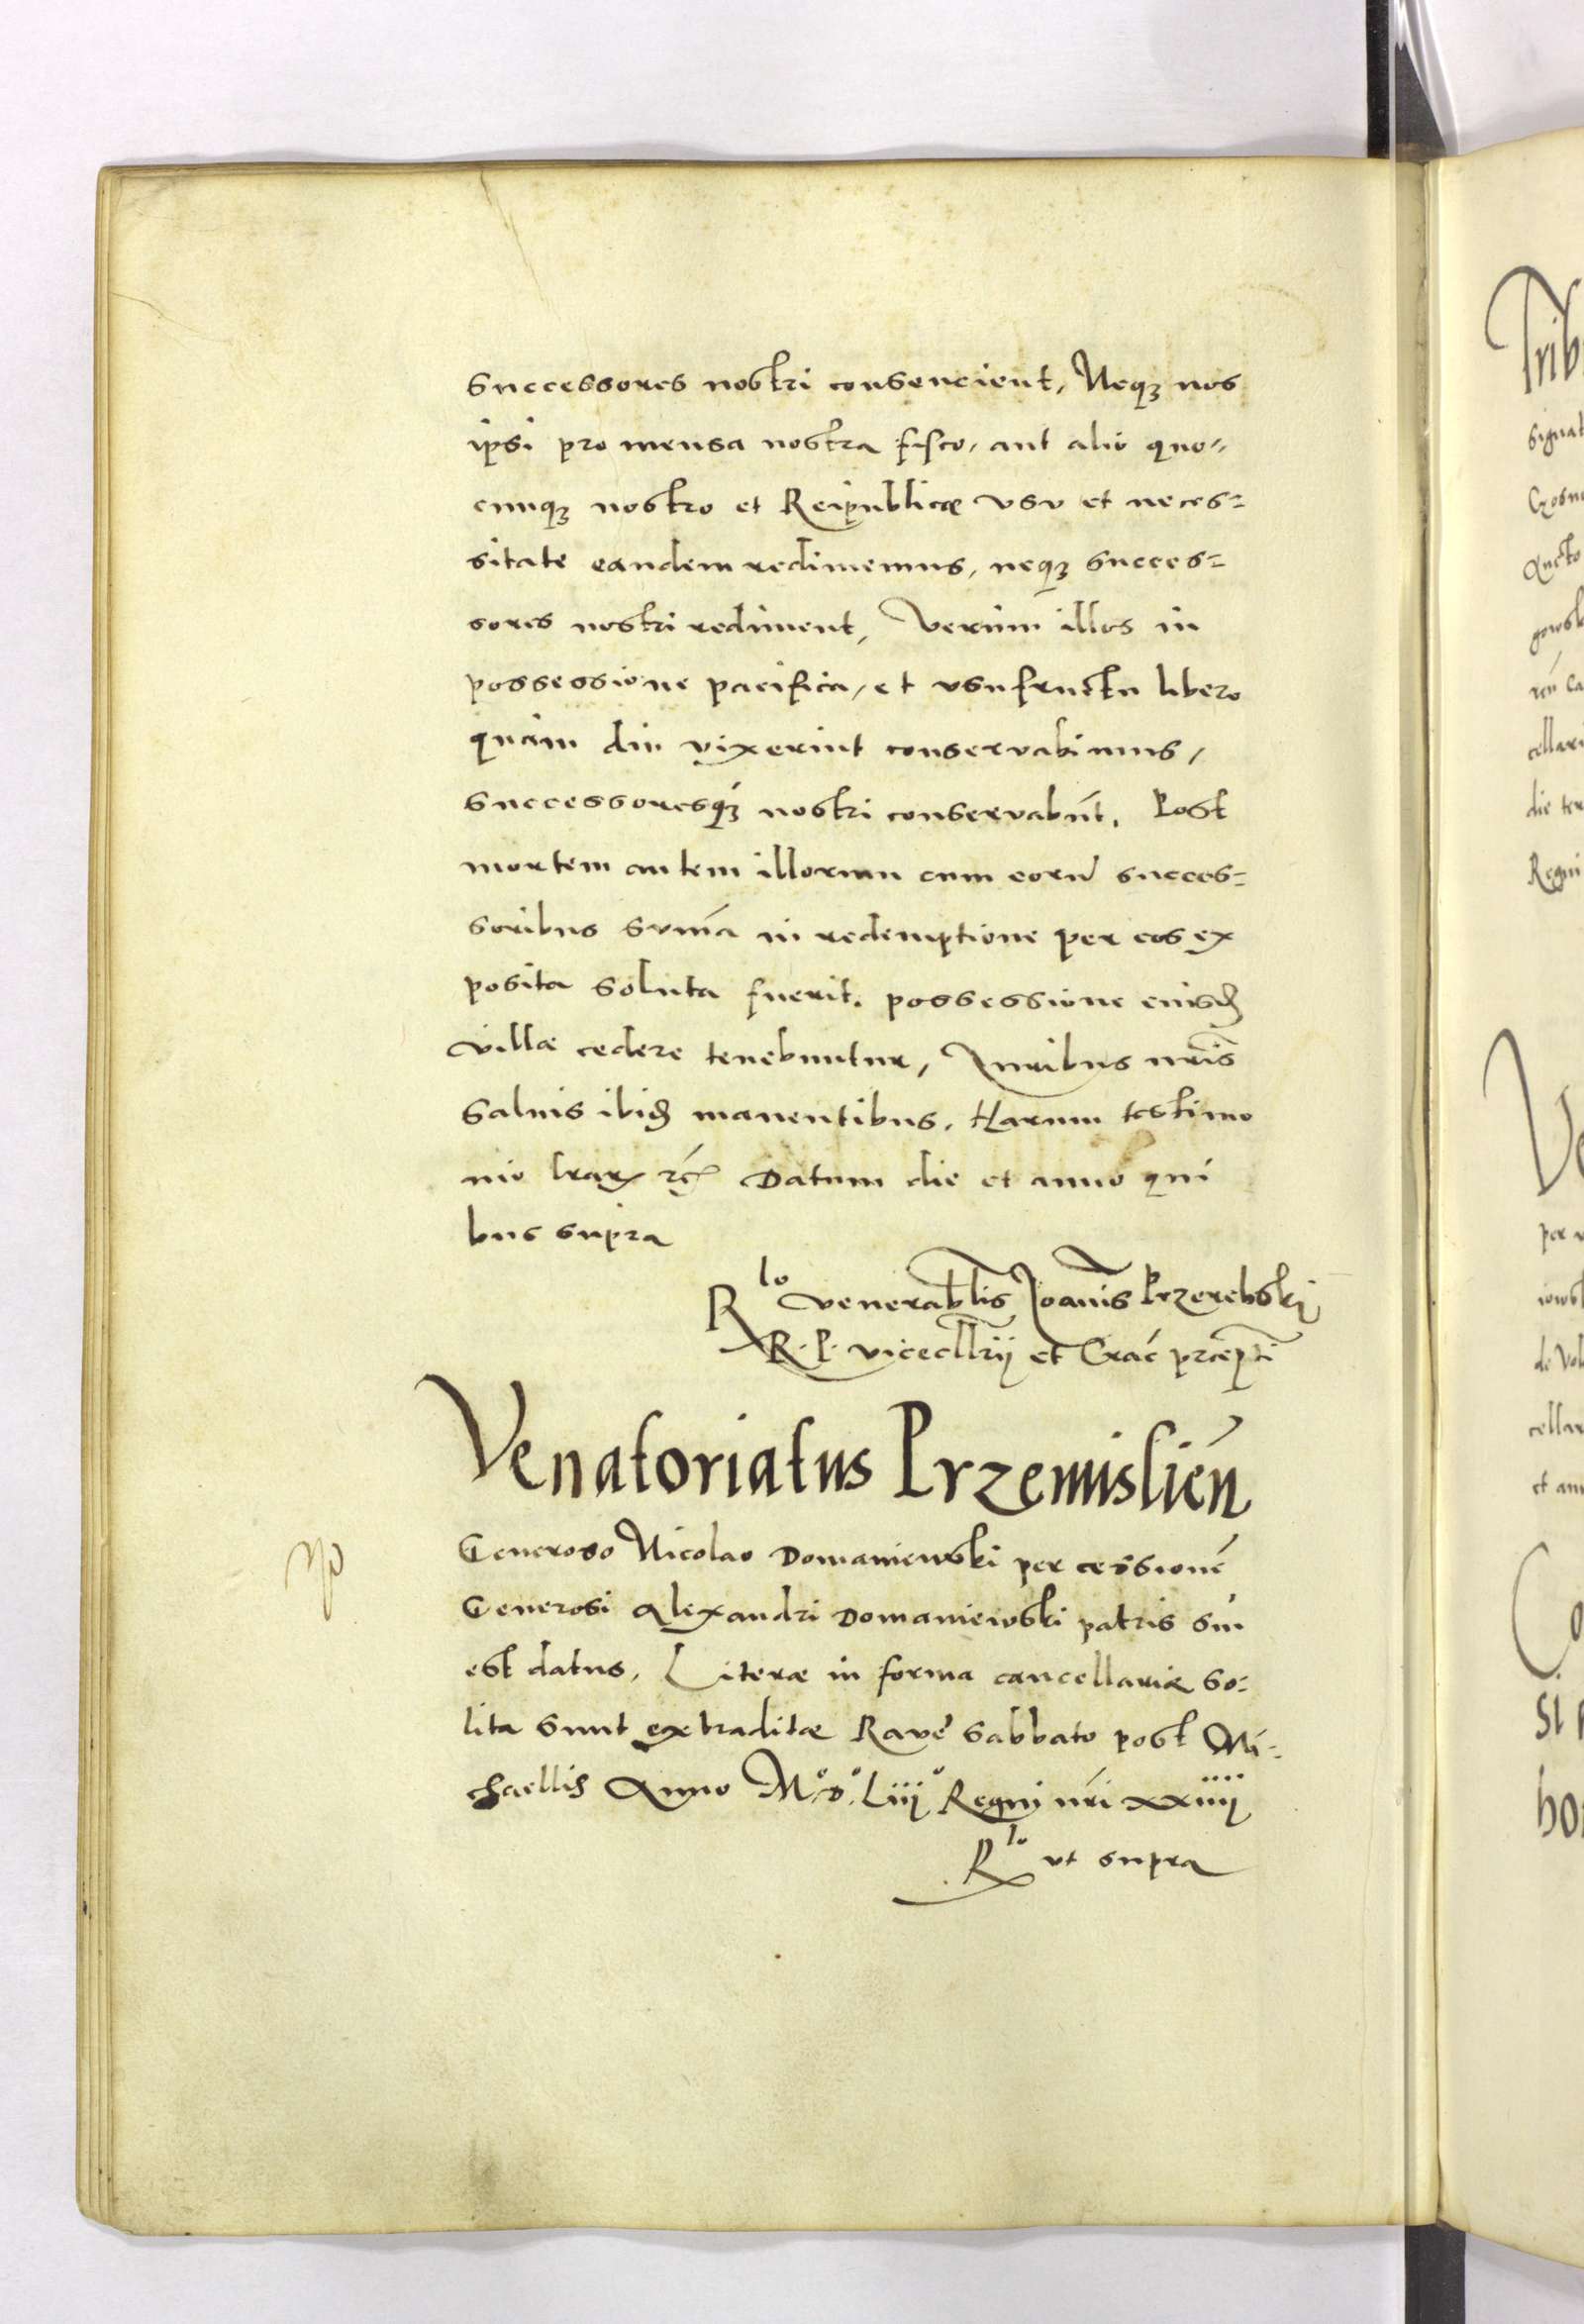 successores nostri consencient, Neqꝫ nos
ipsi pro mensa nostra fisco, aut alio quo-
cunqꝫ nostro et Reipublicæ vsv et neces-
sitate eandem redimemus, neqꝫ succes-
sores nostri rediment, Verùm illos in
possessione pacifica, et vsufructu libero
quàm diu vixerint conservabimus,
successoresqꝫ nostri conservabūt. Post
mortem autem illorum cum eorū succes-
soribus sum̄a in redemptione per eos ex
posita soluta fuerit. possessione eiusđ
villæ cedere tenebuntur, Iuribus nr̄is
saluis ibiđ manentibus. Harum testimo
nio lrarꝫ rč Datum die et anno qui
bus supra
Rlo venerab̄lis Joānis Przerebski
R. P. vicecllrij et Crac̄ præp̄ti
Venatoriatus Przemislień
Generoso Nicolao Domaniewski per cessionē
Generosi Alexandri Domaniewski patris sui
est datus. Literæ in forma cancellariæ so-
lita sunt extraditæ Rave sabbato post Mi-
chaellis Anno M° D° Liij° Regni nr̄i xxiiij
Rlo vt supra
Trib
signat
Czosn
Aucto
gowsk
cellari
die ter
Regni
Ve
per v
iowsk
de Vol
cellar
et ann
Co
St
hon